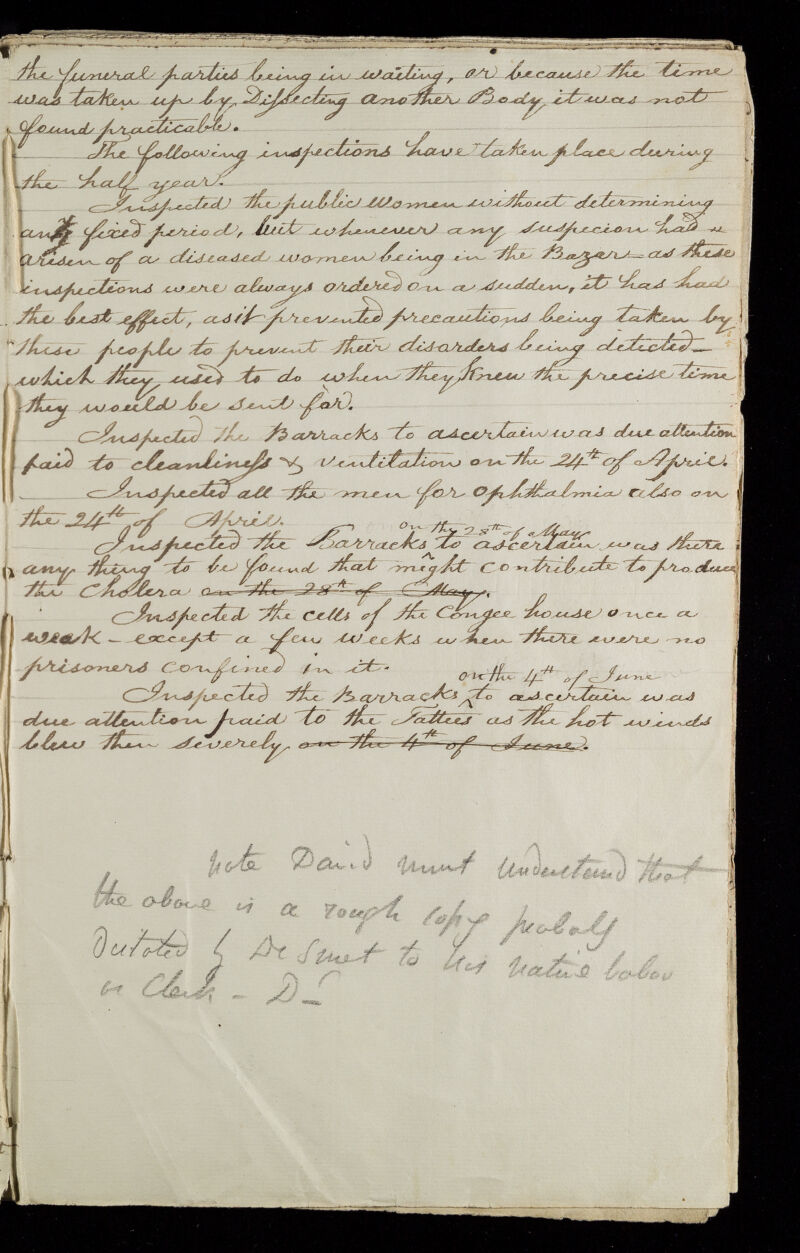 the funeral parties being in waiting, or because the time
was taken up by Dissecting another Body it was not
found practicable.
The following inspections have taken place during
the half year.
Inspected the public women without determining
any fixed period, but whenever any suspecion had
arisen of a diseased women being in the Bazar — as these
inspections were always ordered on a sudden, it has had
the best effect, as it prevented precautions being taken by
these people to prevent their disorders being detected —
which they used to do when they knew the precise time
they would be sent for.
Inspected the Barracks to ascertain was due attention
paid to cleanliness & ventilation on the 24th of April.
Inspected all the men for Ophthalmia also on
the 24th of April.
on the 28th of May
Inspected the Barracks to ascertain was there
any thing to be found that might contribute to produce
the Cholera on the 28th of May.
Inspected the cells of the Congee house once a
week — except a few weeks when there were no
prisoners confined in it.
on the 4th of June
Inspected the Barracks ^ to ascertain was
due attention paid to the Tatties as the hot winds
blew then severely on the 4th of June.
note David must understand that
the above is a rough copy probaly
Dictated by De Smet to his native baboo
or Clerk –